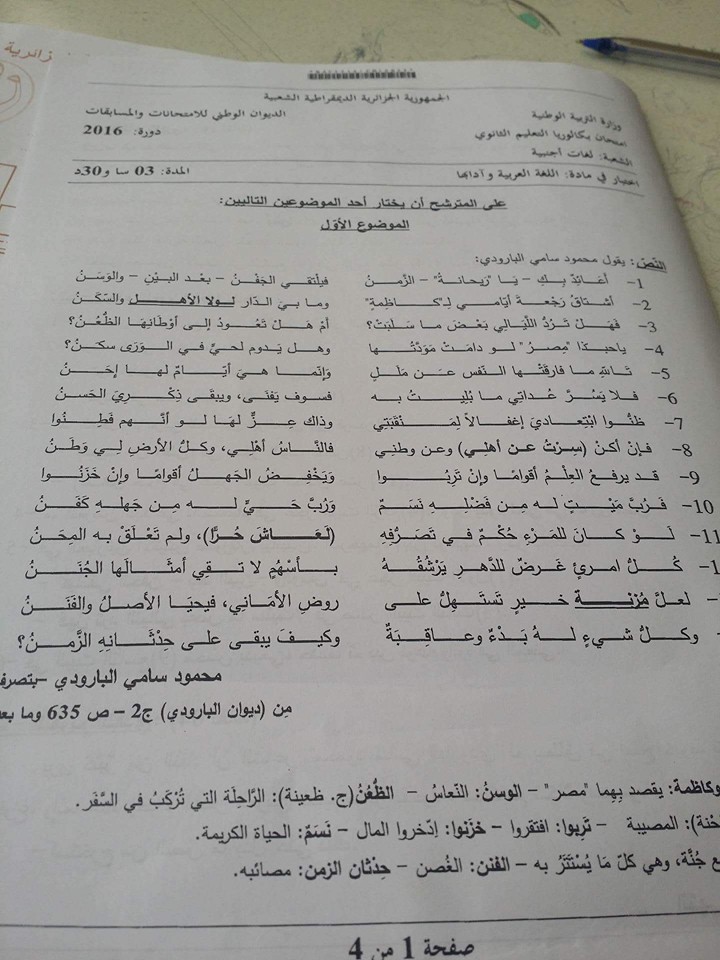 زائرية
الجمهورية الجزائرية الديمقراطية الشعبية
وزارة التربية الوطنية الديوان الوطني للامتحانات والمسابقات
امتحان بكالوريا التعليم الثانوي دورة: 2016
الشعبة: لغات أجنبية
اختبار في مادة: اللغة العربية وآدابها المدة: 03 سا و30د
على المترشح أن يختار أحد الموضوعين التاليين:
الموضوع الأوّل
النّصّ: يقول محمود سامي البارودي:
1- أعَائِدٌ بِكِ - يَا "رَيحانةُ" - الزّمنُ فيلْتَقي الجَفْنُ - بعْد البَيْنِ - والوَسَنُ
2- أشتاقُ رَجْعةَ أيّامي لِـ"كَاظِمةٍ" وما بيَ الدّار لولا الأهلُ والسّكَنُ
3- فهَلْ تَردُّ اللّيالي بَعْضَ ما سَلبَتْ؟ أمْ هَلْ تَعُودُ إلى أوْطَانِهَا الظُّعُنُ؟
4- ياحبّذا "مِصرُ" لو دامَتْ مَودّتُها وهل يَدوم لحيٍّ في الوَرَى سكَنُ؟
5- تَاللهِ ما فارقَتْها النّفس عن مَللٍ وإنّما هيَ أيّامٌ لها إحَنُ
6- فلا يَسُرّ عُداتي ما بُليتُ به فسوف يَفنَى، ويبقَى ذِكْريَ الحَسنُ
7- ظنّوا ابْتِعاديَ إغفالاً لِمَنْقَبَتِي وذاك عِزٌّ لهَا لو أنّهم فَطِنُوا
8- فإنْ أكنْ (سِرْتُ عن أهلِي) وعن وطني فالنّاسُ أهْلِي، وكلُّ الأرضِ لِي وَطَنُ
9- قد يرفعُ العِلْمُ أقوامًا وإنْ تَرِبُوا وَيَخْفِضُ الجَهلُ أقوامًا وإنْ خَزَنُوا
10- فَرُبَّ مَيْتٍ له مِن فَضْلِهِ نَسَمٌ وَرُبَّ حَيٍّ له مِن جَهلِهِ كَفَنُ
11- لَوْ كانَ للمَرْءِ حُكْمٌ في تَصَرُّفِهِ (لَعَاشَ حُرًّا)، ولم تَعْلَقْ به المِحَنُ
1 كُلُّ امرئٍ غَرضٌ للدَّهرِ يَرْشُقُهُ بأسْهُمٍ لا تقِي أمثالَها الجُنَنُ
لعلَّ مُزْنةَ خيرٍ تَستَهِلُّ على روضِ الأمَاني، فيحيَا الأصلُ والفَنَنُ
- وكلُّ شيءٍ لهُ بَدْءٌ وعاقِبةٌ وكيفَ يبقى على حِدْثَانِهِ الزَّمنُ؟
محمود سامي البارودي -بتصرف
مِن (ديوان البارودي) ج2 - ص 635 وما بعد
وكاظمة: يقصد بِهِما "مصر" - الوسنُ: النّعاسُ - الظُّعُنُ(ج. ظعينة): الرّاحِلَة التي تُرْكَبُ في السَّفَر.
): المصيبة - تَرِبوا: افتقروا - خزَنوا: اِدّخروا المال - نَسَمٌ: الحياة الكريمة.
جُنَّة، وهي كلّ مَا يُسْتَتَرُ به - الفنن: الغُصن - حِدْثان الزمن: مصائبه.
صفحة 1 من 4